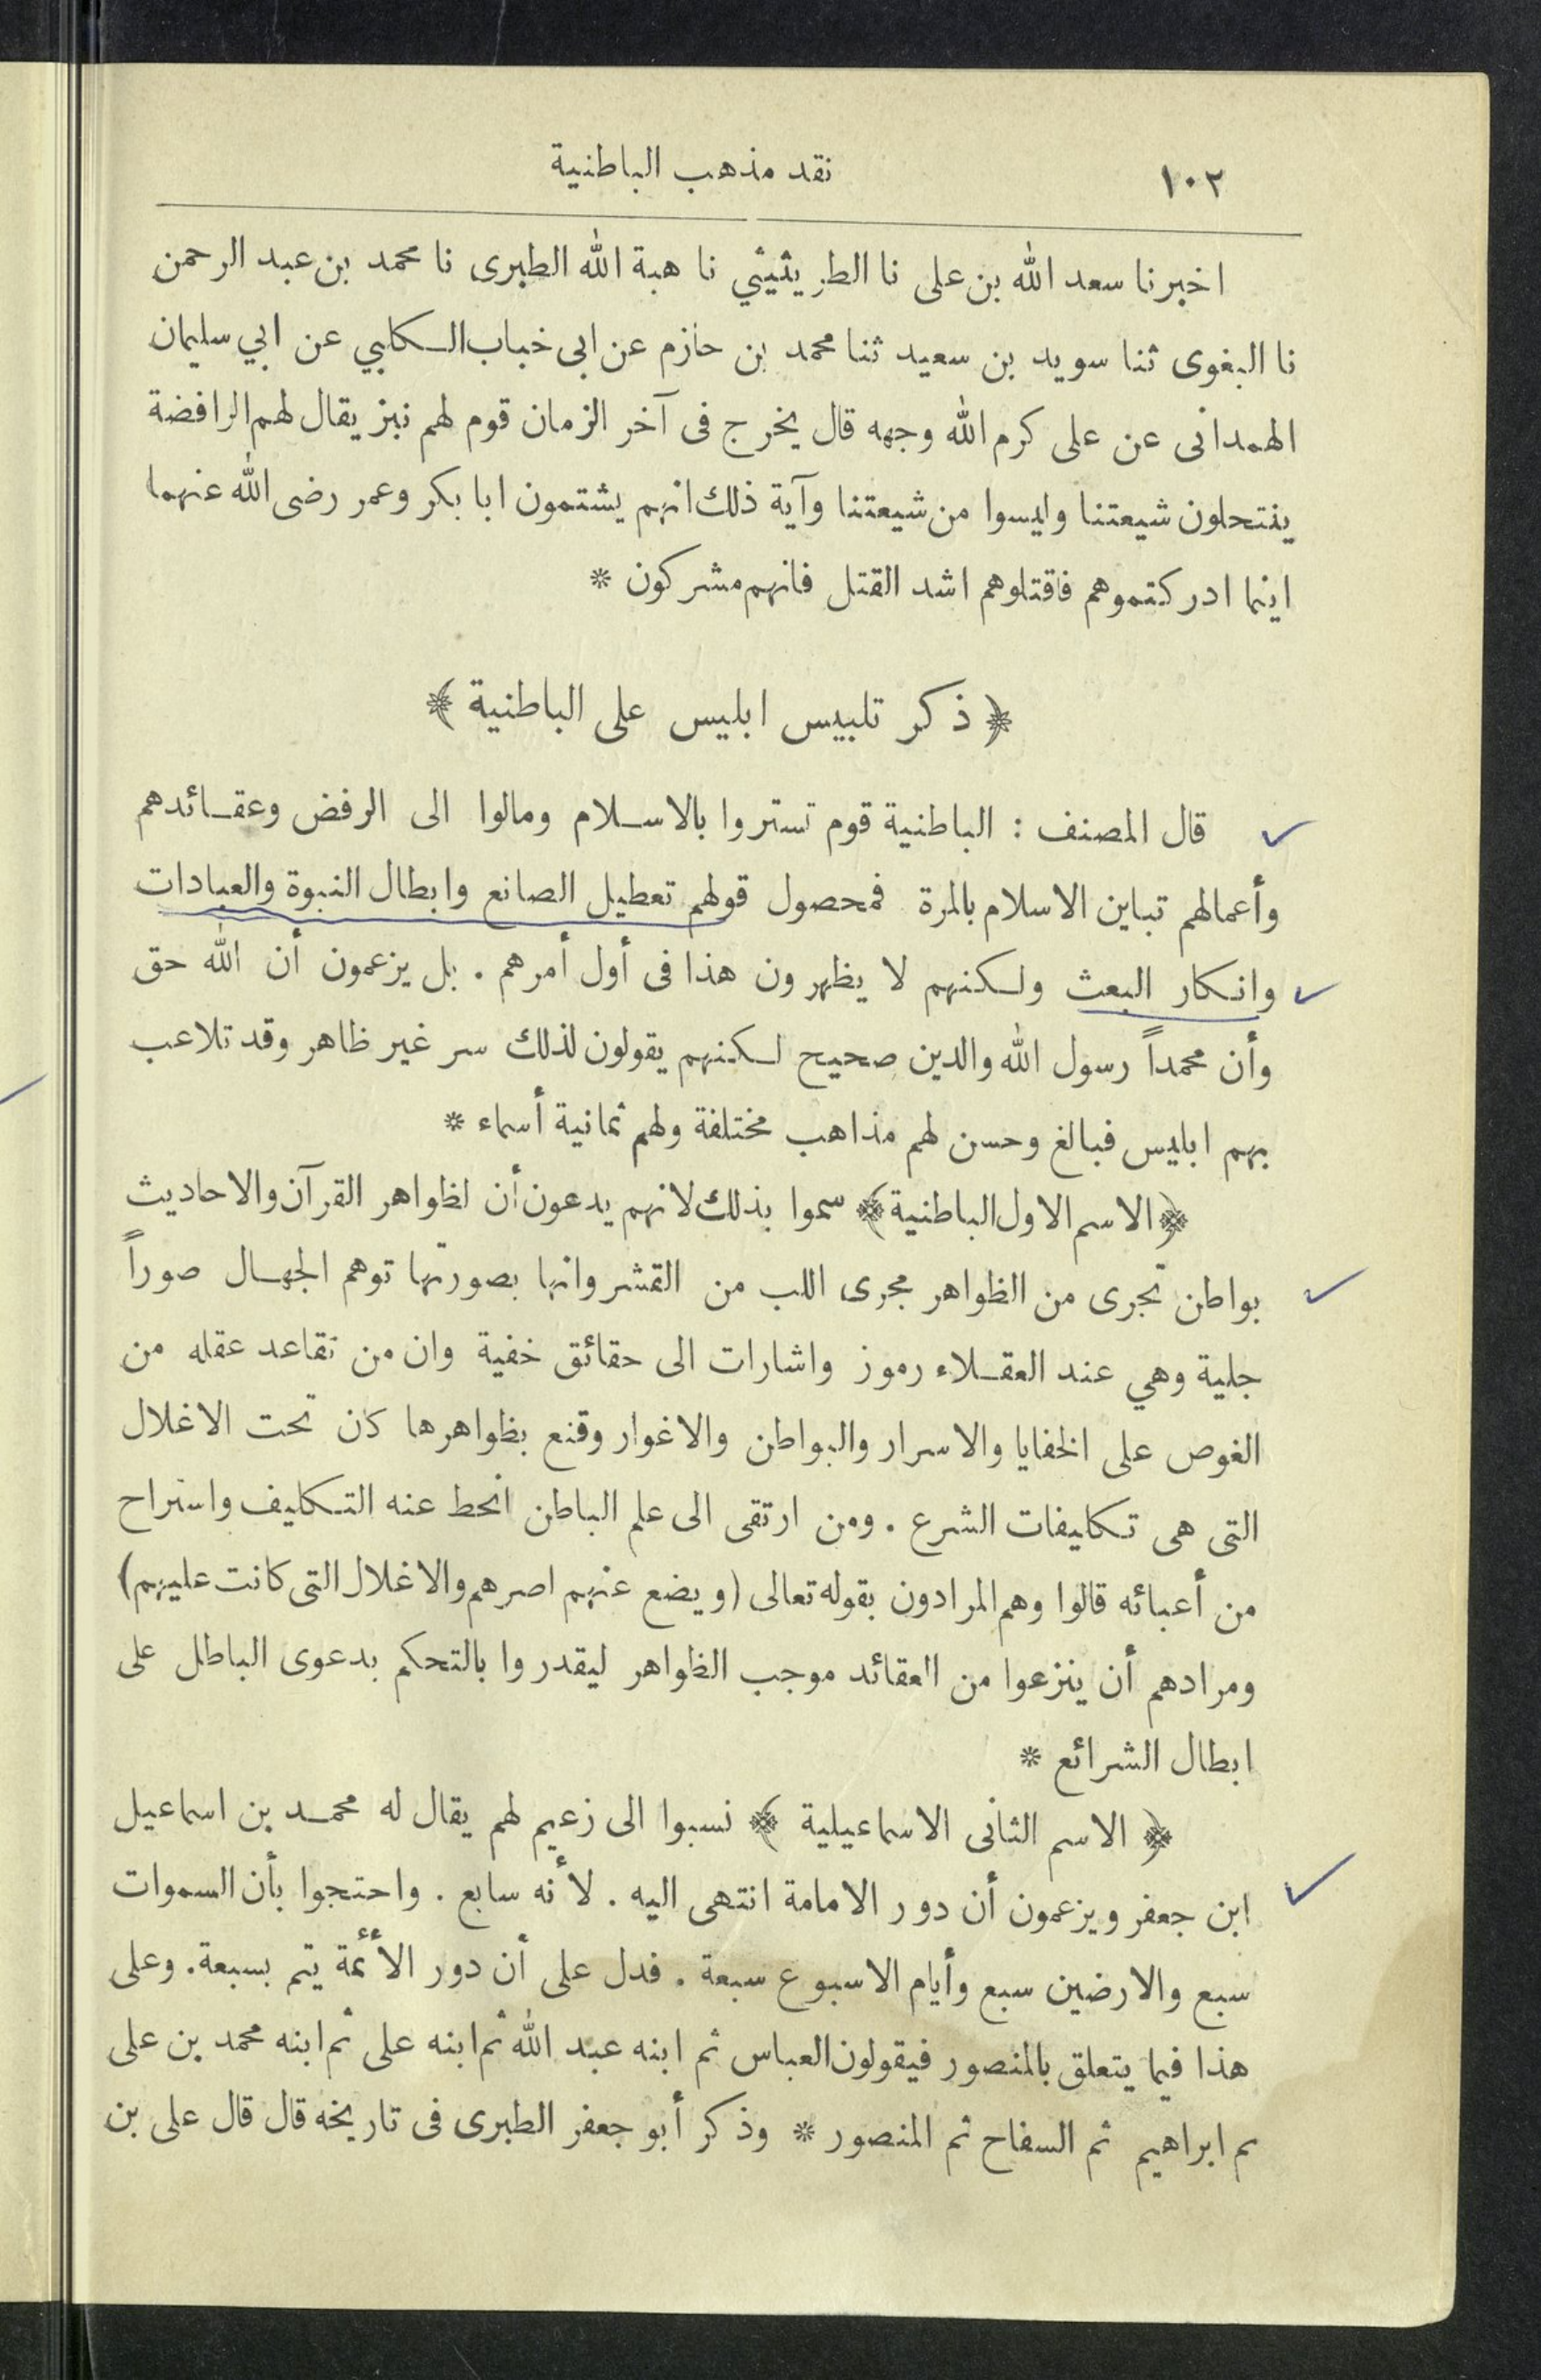 ١٠٢ نقد مذهب الباطنية
اخبرنا سعد الله بن على نا الطريثيثي نا هبة الله الطبرى نا محمد بن عبد الرحمن
نا البغوى ثنا سويد بن سعيد ثنا محمد بن حازم عن ابى خباب الكلبي عن ابي سليمان
الهمدانى عن على كرم الله وجهه قال يخرج فى آخر الزمان قوم لهم نبز يقال لهم الرافضة
ينتحلون شيعتنا وليسوا من شيعتنا وآية ذلك انهم يشتمون ابا بكر وعمر رضى الله عنهما
اينما ادركتموهم فاقتلوهم اشد القتل فانهم مشركون *
﴿ ذكر تلبيس ابليس على الباطنية ﴾
قال المصنف : الباطنية قوم تستروا بالاسلام ومالوا الى الرفض وعقائدهم
وأعمالهم تباين الاسلام بالمرة فمحصول قولهم تعطيل الصانع وابطال النبوة والعبادات
وانكار البعث ولكنهم لا يظهرون هذا فى أول أمرهم . بل يزعمون أن الله حق
وأن محمداً رسول الله والدين صحيح لكنهم يقولون لذلك سر غير ظاهر وقد تلاعب
بهم ابليس فبالغ وحسن لهم مذاهب مختلفة ولهم ثمانية أسماء *
﴿الاسم الاول الباطنية﴾ سموا بذلك لانهم يدعون أن لظواهر القرآن والاحاديث
بواطن تجرى من الظواهر مجرى اللب من القشر وانها بصورتها توهم الجهال صوراً
جلية وهي عند العقلاء رموز واشارات الى حقائق خفية وان من تقاعد عقله من
الغوص على الخفايا والاسرار والبواطن والاغوار وقنع بظواهرها كان تحت الاغلال
التى هى تكليفات الشرع . ومن ارتقى الى علم الباطن انحط عنه التكليف واستراح
من أعبائه قالوا وهم المرادون بقوله تعالى (ويضع عنهم اصرهم والاغلال التى كانت عليهم)
ومرادهم أن ينزعوا من العقائد موجب الظواهر ليقدروا بالتحكم بدعوى الباطل على
ابطال الشرائع *
﴿ الاسم الثانى الاسماعيلية ﴾ نسبوا الى زعيم لهم يقال له محمد بن اسماعيل
ابن جعفر ويزعمون أن دور الامامة انتهى اليه . لأنه سابع . واحتجوا بأن السموات
سبع والارضين سبع وأيام الاسبوع سبعة . فدل على أن دور الأئمة يتم بسبعة. وعلى
هذا فيما يتعلق بالمنصور فيقولون العباس ثم ابنه عبد الله ثم ابنه على ثم ابنه محمد بن على
ثم ابراهيم ثم السفاح ثم المنصور * وذكر أبو جعفر الطبرى فى تاريخه قال قال على بن